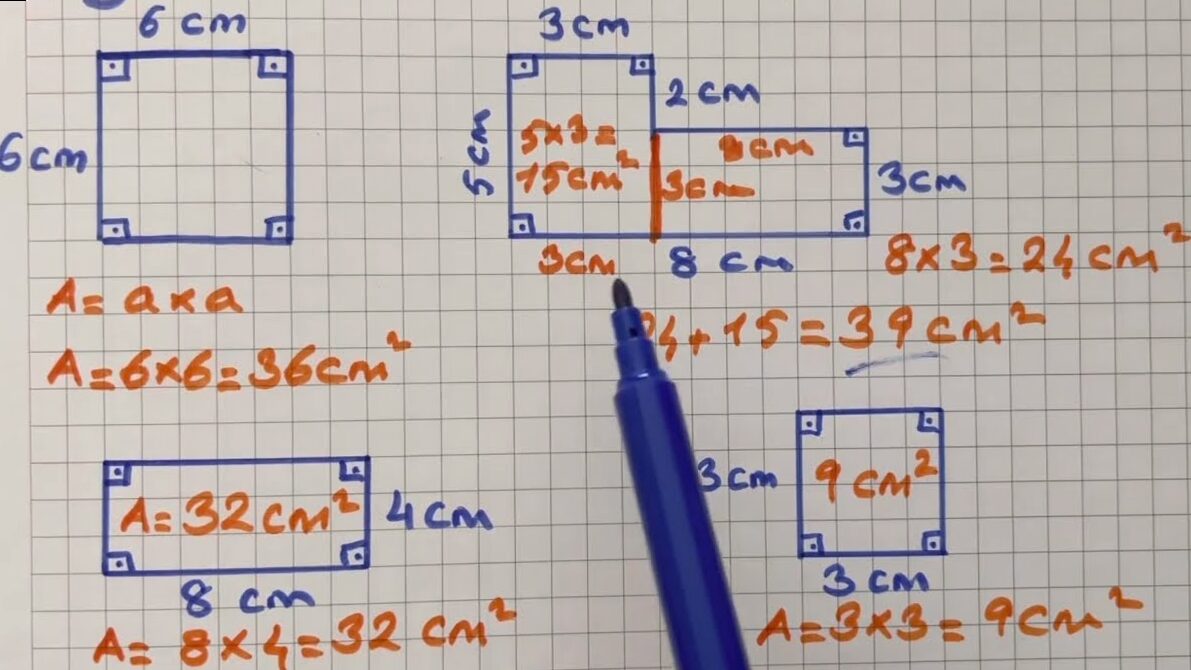 6 cm
6 cm
A= a x a
A=6x6=36cm²
3 cm
2 cm
5 cm
5x3=
15cm²
cm
3cm
3cm
3cm
8 cm
8x3=24cm²
4+15=39cm²
A=32cm²
4 cm
8 cm
A= 8x4=32 cm²
3 cm
9 cm²
3 cm
A=3x3=9cm²